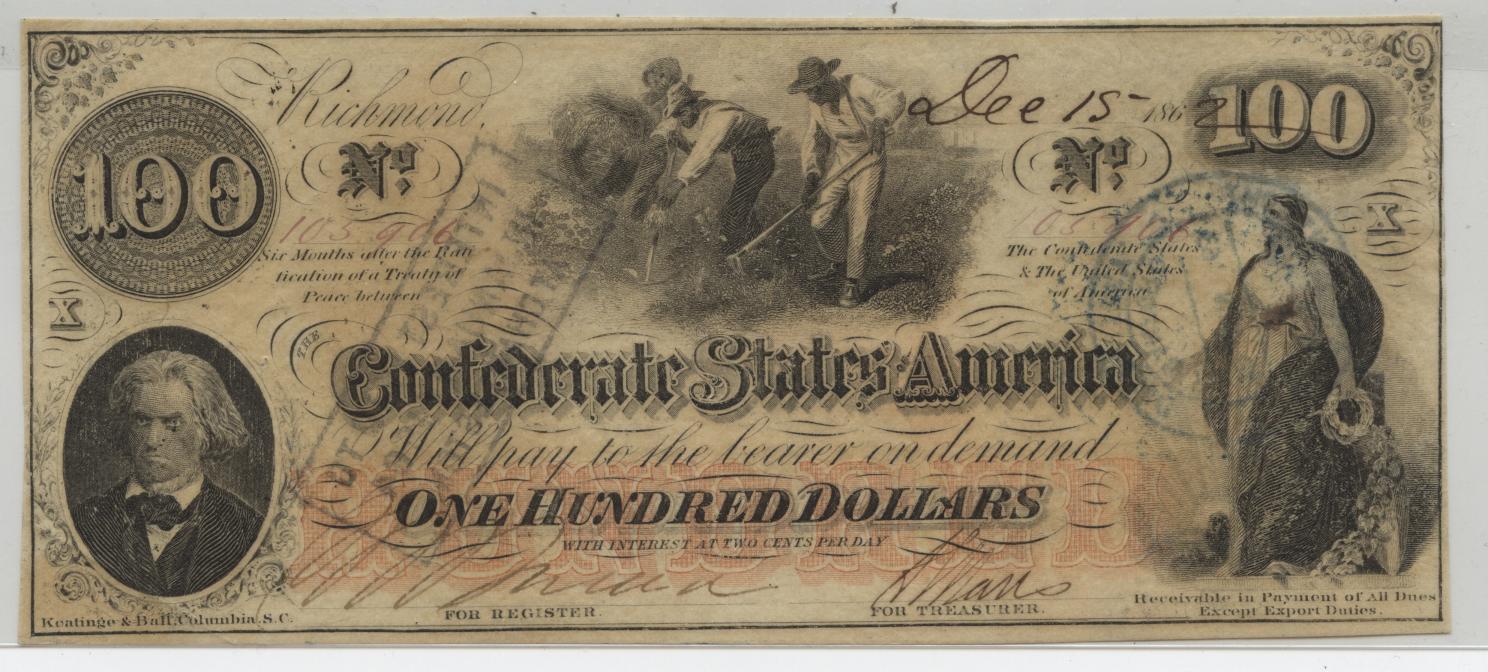 Richmond,
Dec 15 - 1862
100
100
No
No
105906
105906
Six Months after the Rati
fication of a Treaty of
Peace between
The Confederate States
& The United States
of America
X
X
THE
Confederate States America
Will pay to the bearer on demand
HUNDRED
ONE HUNDRED DOLLARS
WITH INTEREST AT TWO CENTS PER DAY
FOR REGISTER.
FOR TREASURER.
Receivable in Payment of All Dues
Except Export Duties.
Keatinge & Ball, Columbia, S.C.